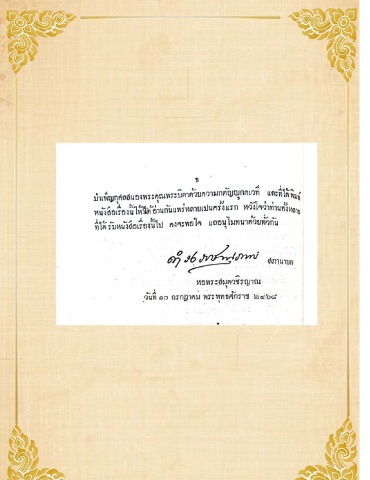 ข
บำเพ็ญกุศลสนองพระคุณพระบิดาด้วยความกตัญญูกตเวที และที่ได้พิมพ์
หนังสือเรื่องนี้ให้ได้อ่านกันแพร่หลายเปนครั้งแรก หวังใจว่าท่านทั้งหลาย
ที่ได้รับหนังสือเรื่องนี้ไป คงจะพอใจ แลอนุโมทนาด้วยทั่วกัน
สภานายก
หอพระสมุดวชิรญาณ
วันที่ ๑๐ กรกฎาคม พระพุทธศักราช ๒๔๖๘